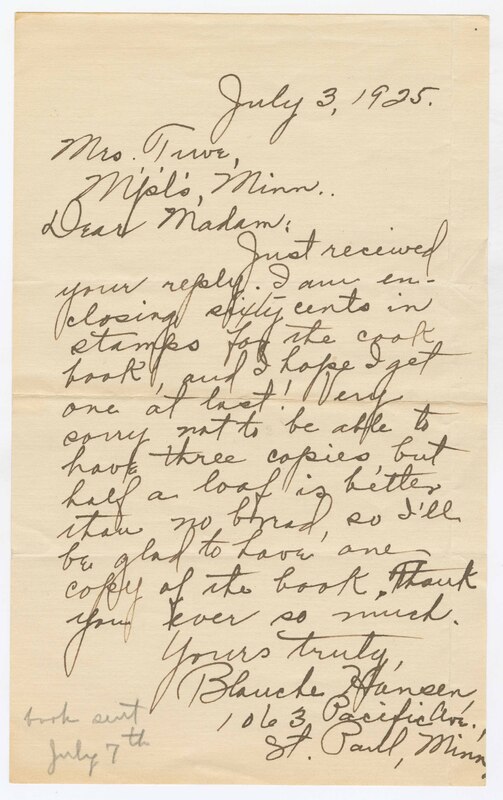 July 3, 1925.
Mrs. Tuve,
Mpl's, Minn..
Dear Madam:
Just received
your reply. I am en-
closing sixty cents in
stamps for the cook
book, and I hope I get
one at last! Very
sorry not to be able to
have three copies but
half a loaf is better
than no bread, so I'll
be glad to have one
copy of the book. Thank
you ever so much.
Yours truly,
Blanche Hansen,
1063 Pacific Ave.,
St. Paul, Minn.
book sent
July 7th